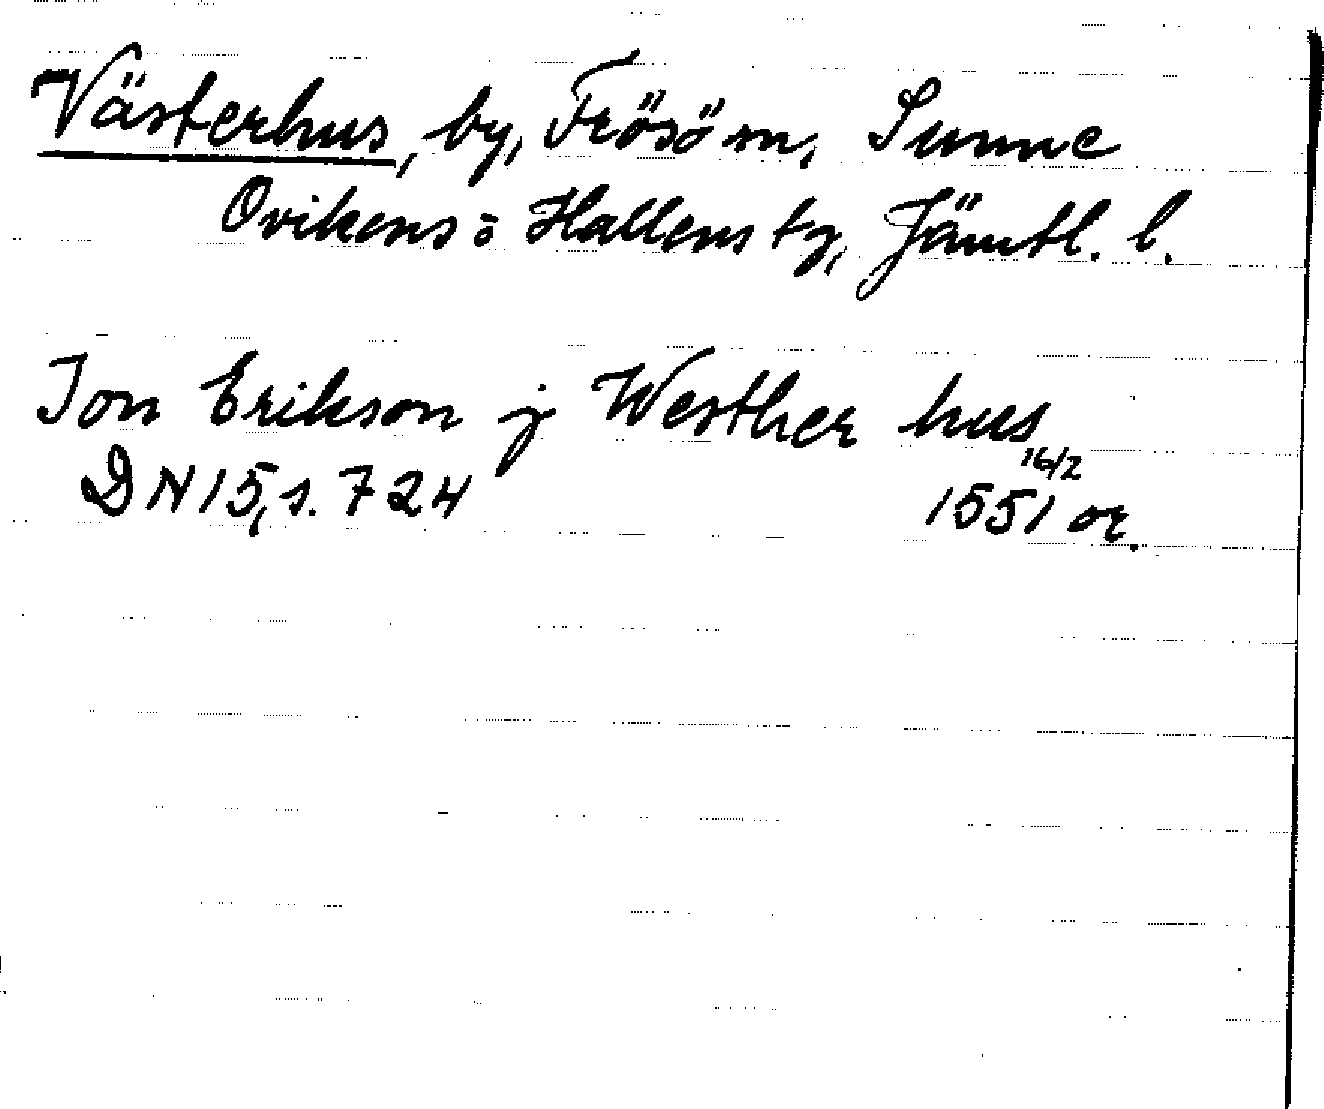 Västerhus, by, Frösö sn, Sunne
Ovikens o Hallens tg, Jämtl. l.
Jon Erikson j Westher hus
16/2
DN 15, s. 724 1551 or.